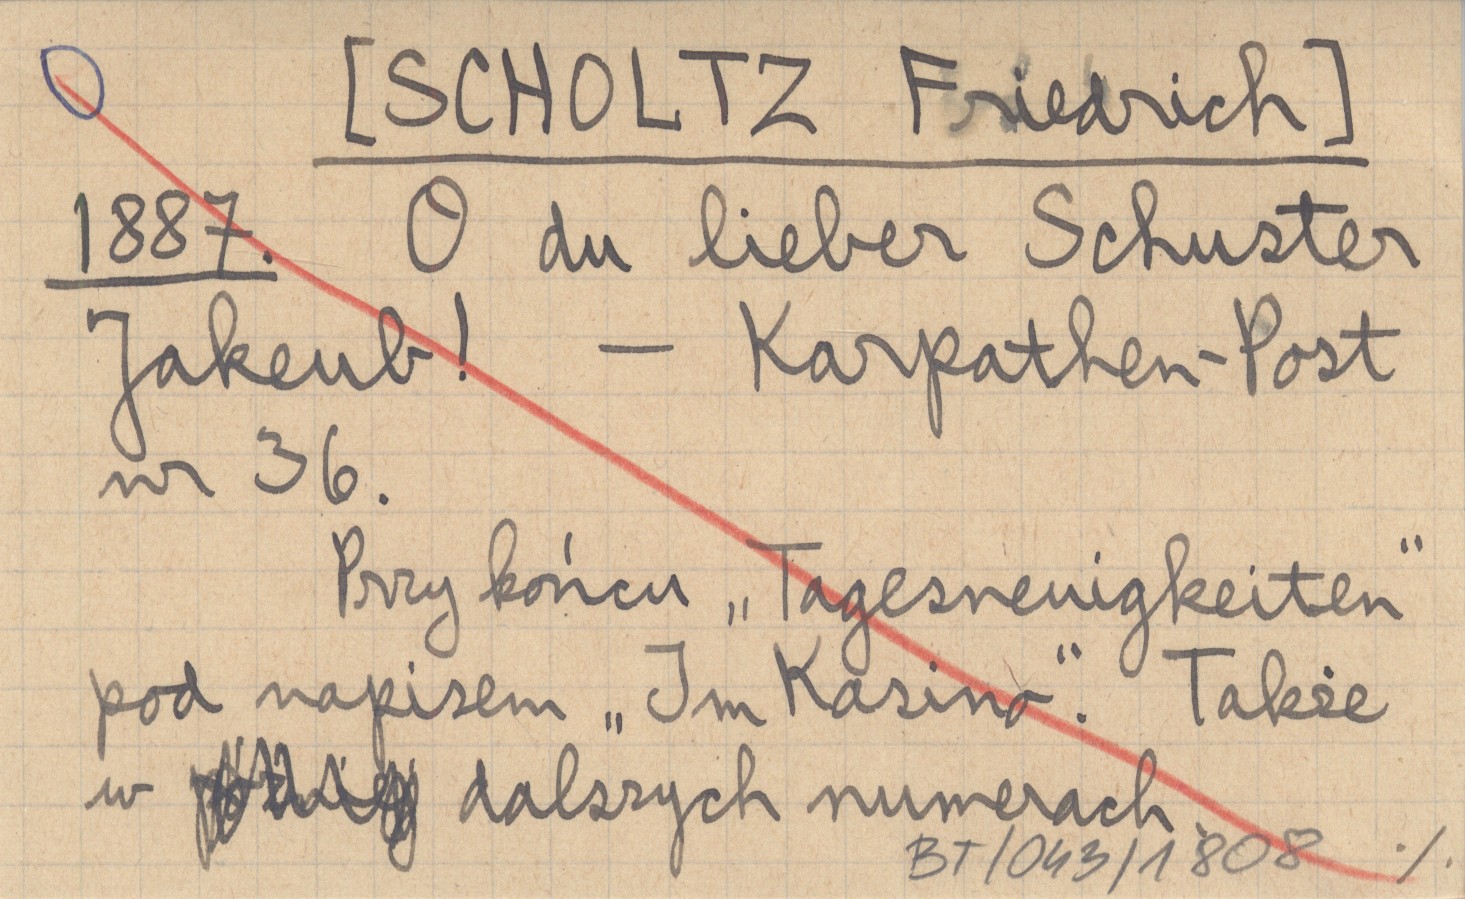 [SCHOLTZ Friedrich]
1887. O du lieber Schuster
Jakeub! — Karpathen-Post
nr 36.
Przy końcu „Tagesneuigkeiten“
pod napisem „Im Kasino“. Także
w dalszych numerach.
BT/043/1808 ./.